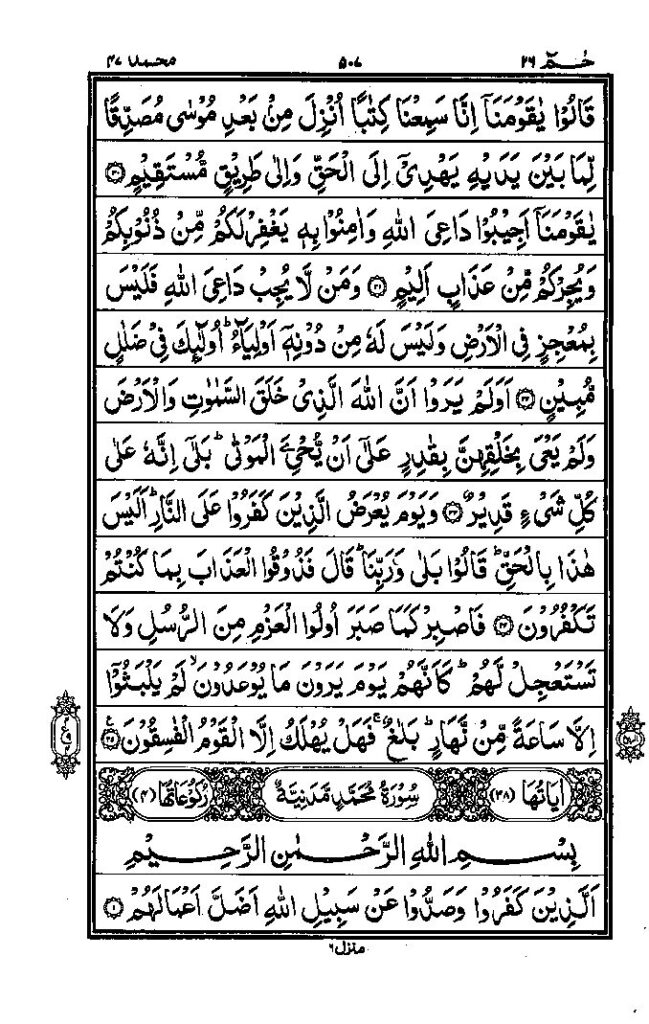 حٰمٓ ٢٦
٥٠٧
محمد ٤٧
قَالُوْا يٰقَوْمَنَآ اِنَّا سَمِعْنَا كِتٰبًا اُنْزِلَ مِنْۢ بَعْدِ مُوْسٰى مُصَدِّقًا
لِّمَا بَيْنَ يَدَيْهِ يَهْدِىْٓ اِلَى الْحَقِّ وَاِلٰى طَرِيْقٍ مُّسْتَقِيْمٍ ۝٣٠
يٰقَوْمَنَآ اَجِيْبُوْا دَاعِىَ اللّٰهِ وَاٰمِنُوْا بِهٖ يَغْفِرْ لَكُمْ مِّنْ ذُنُوْبِكُمْ
وَيُجِرْكُمْ مِّنْ عَذَابٍ اَلِيْمٍ ۝٣١ وَمَنْ لَّا يُجِبْ دَاعِىَ اللّٰهِ فَلَيْسَ
بِمُعْجِزٍ فِى الْاَرْضِ وَلَيْسَ لَهٗ مِنْ دُوْنِهٖٓ اَوْلِيَآءُ ؕ اُولٰٓئِكَ فِىْ ضَلٰلٍ
مُّبِيْنٍ ۝٣٢ اَوَلَمْ يَرَوْا اَنَّ اللّٰهَ الَّذِىْ خَلَقَ السَّمٰوٰتِ وَالْاَرْضَ
وَلَمْ يَعْىَ بِخَلْقِهِنَّ بِقٰدِرٍ عَلٰٓى اَنْ يُّحْيِۦَ الْمَوْتٰى ؕ بَلٰٓى اِنَّهٗ عَلٰى
كُلِّ شَىْءٍ قَدِيْرٌ ۝٣٣ وَيَوْمَ يُعْرَضُ الَّذِيْنَ كَفَرُوْا عَلَى النَّارِ ؕ اَلَيْسَ
هٰذَا بِالْحَقِّ ؕ قَالُوْا بَلٰى وَرَبِّنَا ؕ قَالَ فَذُوْقُوا الْعَذَابَ بِمَا كُنْتُمْ
تَكْفُرُوْنَ ۝٣٤ فَاصْبِرْ كَمَا صَبَرَ اُولُوا الْعَزْمِ مِنَ الرُّسُلِ وَلَا
تَسْتَعْجِلْ لَّهُمْ ؕ كَاَنَّهُمْ يَوْمَ يَرَوْنَ مَا يُوْعَدُوْنَ ۙ لَمْ يَلْبَثُوْٓا
اِلَّا سَاعَةً مِّنْ نَّهَارٍ ؕ بَلٰغٌ ۚ فَهَلْ يُهْلَكُ اِلَّا الْقَوْمُ الْفٰسِقُوْنَ ۝٣٥
اٰيَاتُهَا (٣٨) سُوْرَةُ مُحَمَّدٍ مَّدَنِيَّةٌ رُكُوْعَاتُهَا (٤)
بِسْمِ اللّٰهِ الرَّحْمٰنِ الرَّحِيْمِ
اَلَّذِيْنَ كَفَرُوْا وَصَدُّوْا عَنْ سَبِيْلِ اللّٰهِ اَضَلَّ اَعْمَالَهُمْ ۝١
منزل ٦